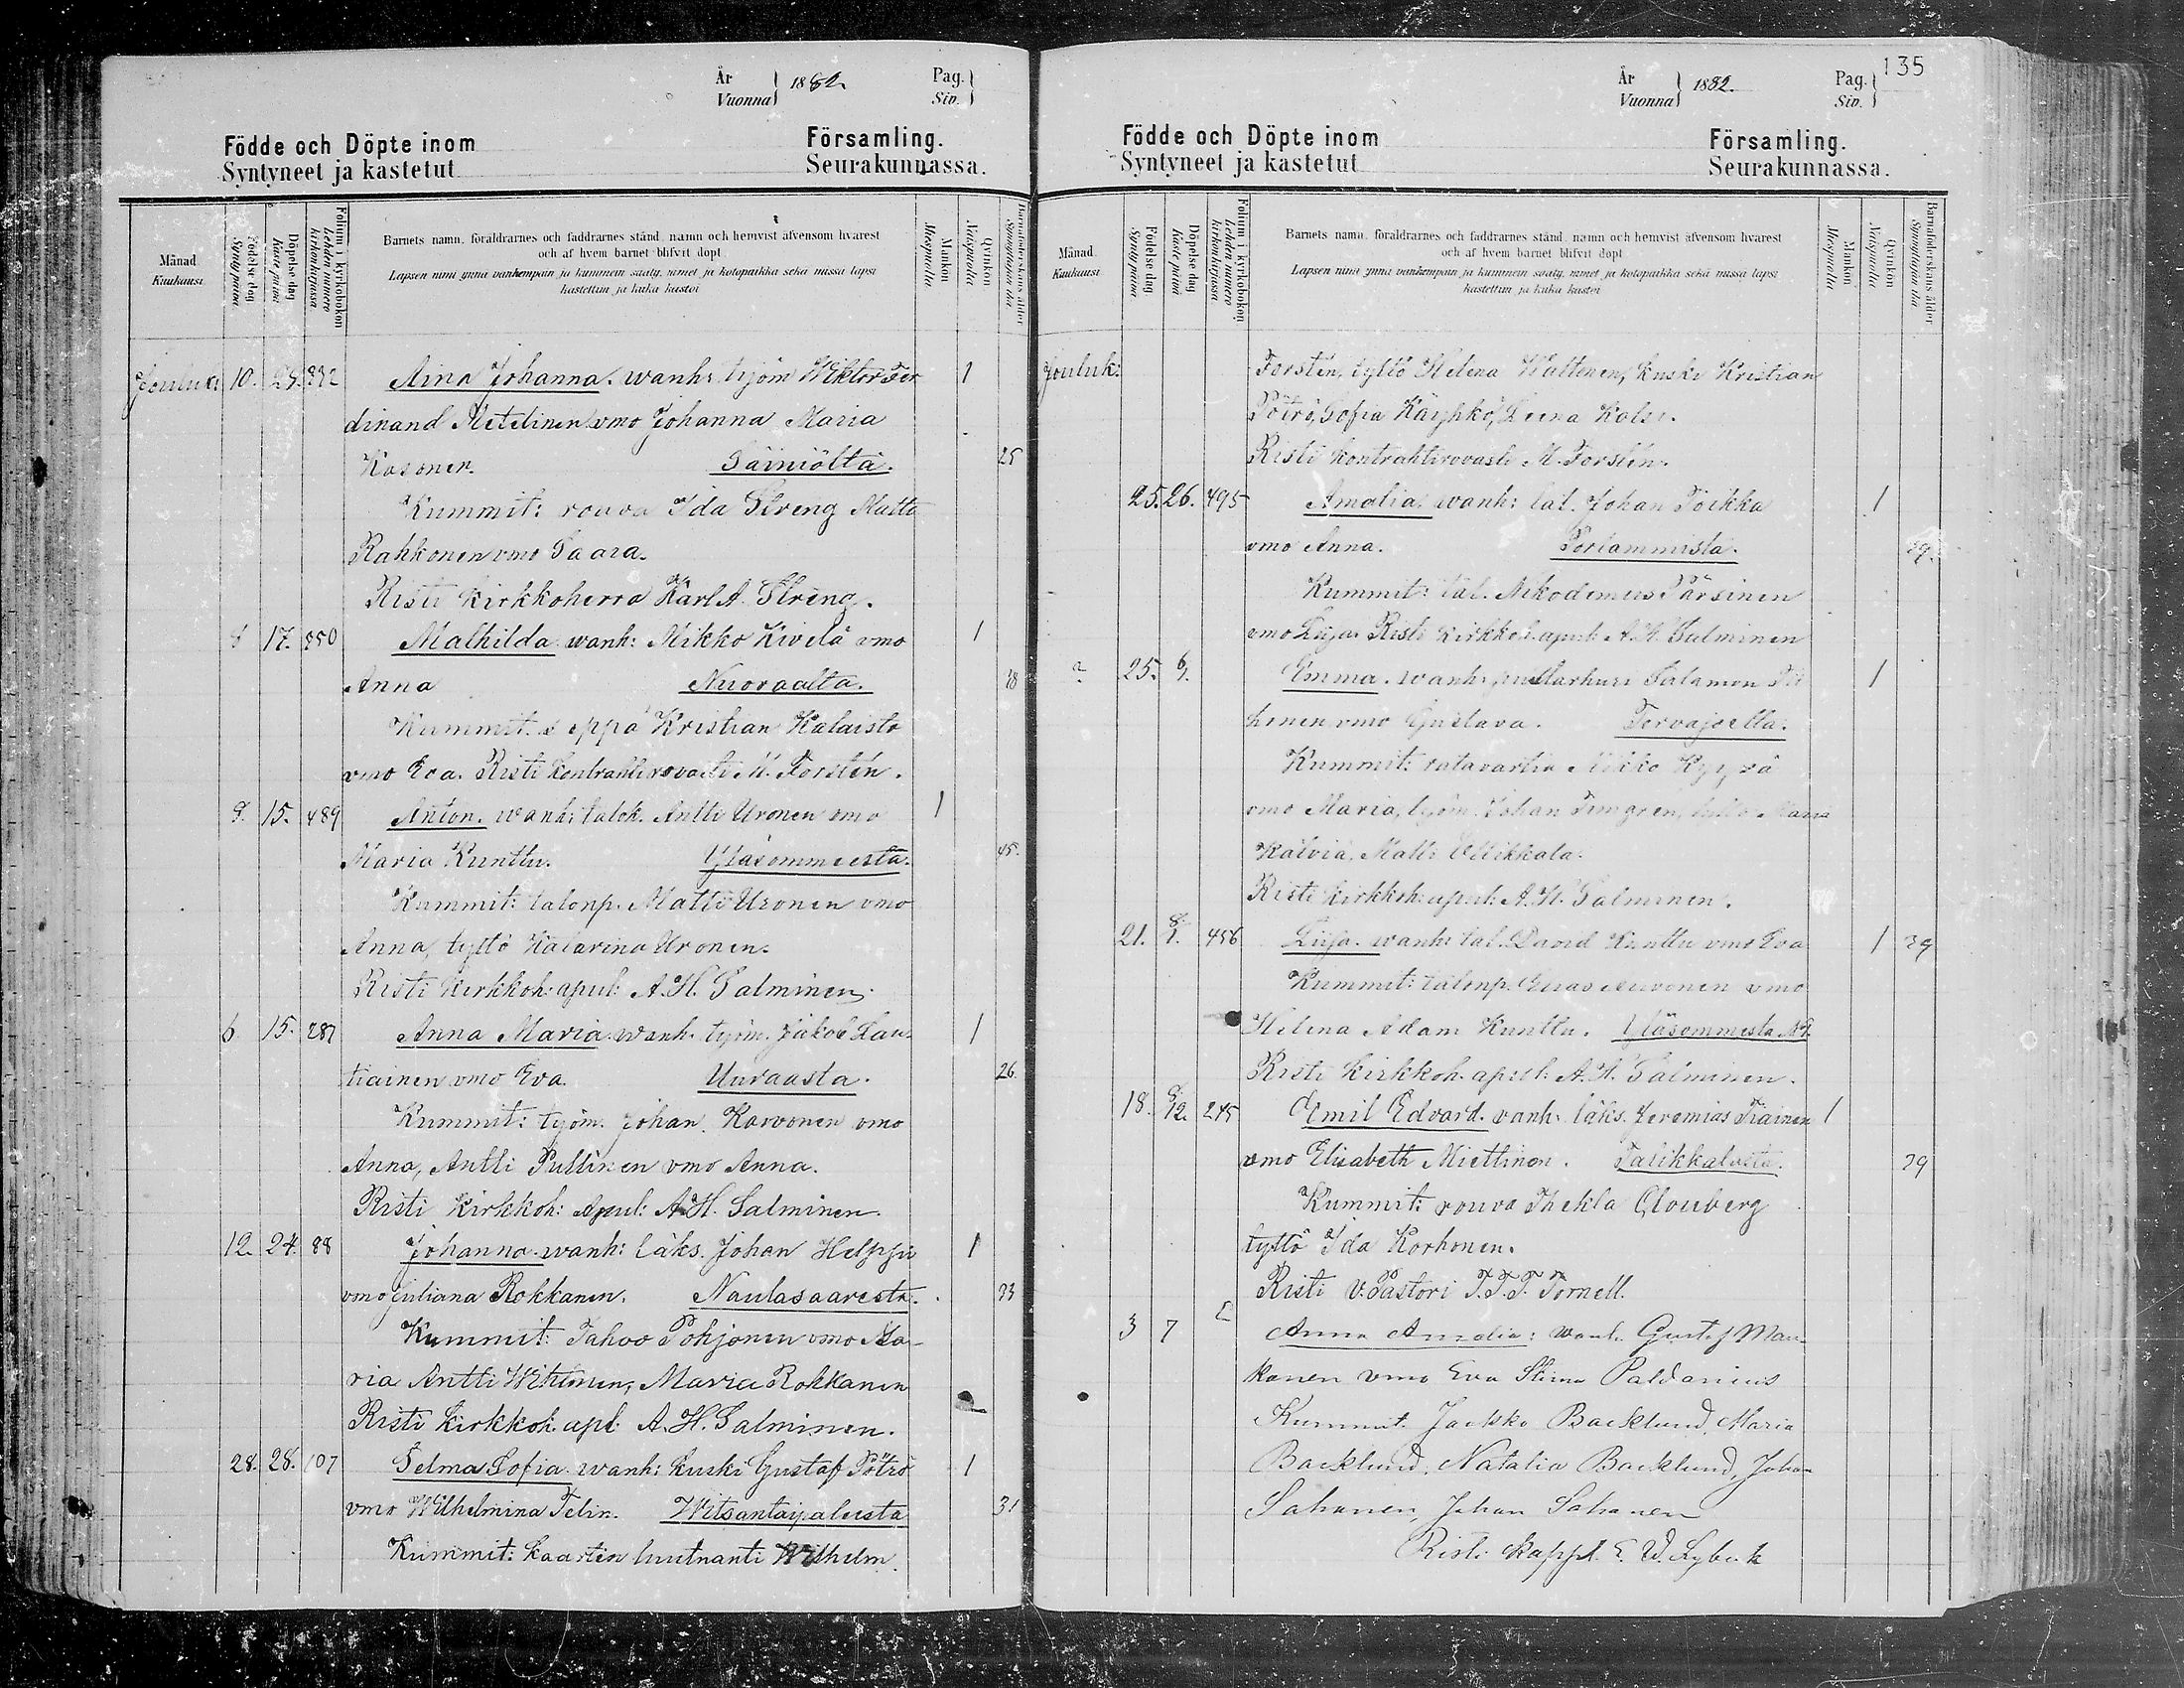 År
Vuonna
1882.
Pag.
Siv.
Födde och Döpte inom
Församling.
Syntyneet ja kastetut
Seurakunnassa.
Månad
Kuukausi
Födelse dag
Syntypäivä
Döpelse dag
Kaste päivä
Folium i kyrkoboken
Lehden numero kirkonkirjassa
Barnets namn, föräldrarnes och faddrarnes stånd, namn och hemvist äfvensom hvarest
och af hvem barnet blifvit döpt
Lapsen nimi ynnä vanhempain ja kummein sääty, nimet ja kotopaikka sekä missä lapsi
kastettiin ja kuka kastoi
Mankön
Miespuolia
Qvinkön
Naispuolia
Barnaföderskans ålder
Synnyttäjän ikä
Jouluk 10. 29. 332 Aina Johanna. wanh: työm Wiktor Fer 1
dinand Metelinen vmo Johanna Maria
Kosonen. Säiniöltä. 25
Kummit: rouva Ida Streng Matti
Rahkonen vmo Saara.
Risti kirkkoherra Karl A. Streng.
8 17. 350 Mathilda wanh: Mikko Kivelä vmo 1
Anna Nuoraalta. 38
Kummit. seppä Kristian Kalaisto
vmo Eva. Risti kontrahtirovasti M. Forstén.
8. 15. 489 Anton. wanh: talok. Antti Uronen vmo 1
Maria Kunttu. Yläsommeesta. 45.
Kummit: talonp. Matti Uronen vmo
Anna, tyttö Katarina Uronen.
Risti kirkkoh: apul: A. H. Salminen.
6. 15. 287 Anna Maria wanh. työm. Jakob Lau- 1
tiainen vmo Eva. Uuraasta. 26.
Kummit: työm. Johan. Karvonen vmo
Anna, Antti Pullinen vmo Anna.
Risti kirkkoh: Apul: A. H. Salminen.
12. 24. 88 Johanna wanh: läks. Johan Helppi 1
vmo Juliana Rokkanen. Naulasaaresta. 33
Kummit: Tahvo Pohjonen vmo Ma-
ria Antti Wihtonen, Maria Rokkanen
Risti kirkkoh. apl: A. H. Salminen.
28. 28. 107 Selma Sofia wanh: kuski Gustaf Pötrö 1
vmo Wilhelmina Felin. Witsantaipaleesta 31
Kummit: kaartin luutnanti Wilhelm
135
År
Vuonna
1882.
Pag.
Siv.
Födde och Döpte inom
Församling.
Syntyneet ja kastetut
Seurakunnassa.
Månad
Kuukausi
Födelse dag
Syntypäivä
Döpelse dag
Kaste päivä
Folium i kyrkoboken
Lehden numero kirkonkirjassa
Barnets namn, föräldrarnes och faddrarnes stånd, namn och hemvist äfvensom hvarest
och af hvem barnet blifvit döpt
Lapsen nimi ynnä vanhempain ja kummein sääty, nimet ja kotopaikka sekä missä lapsi
kastettiin ja kuka kastoi
Mankön
Miespuolia
Qvinkön
Naispuolia
Barnaföderskans ålder
Synnyttäjän ikä
Jouluk: Forstén, tyttö Helena Wattenen, kuski Kristian
Pötrö, Sofia Käyhkö, Leena Kolsi.
Risti kontrahtirovasti M. Forstén.
25. 26. 495 Amalia. wanh: tal. Johan Töikka 1
vmo Anna. Porlammista. 39.
Kummit: tal. Nikodemus Pärsinen
vmo Liisa. Risti kirkkoh. apul: A. H. Salminen
25. 6/1. Emma. wanh: puutarhuri Salamon 1
hinen vmo Gustava. Tervajoelta.
Kummit: ratavartia Mikko Kyyrä
vmo Maria, työm. Johan, tyttö Maria
Kälviä, Matti Ollikkala.
Risti kirkkoh: apul: A. H. Salminen.
21. 8/1. 456 Liisa. wanh: tal. David Kunttu vmo Eva 1 39
Kummit: talonp. Esias Nuvonen vmo
Helena Adam Kunttu. Yläsommesta
Risti kirkkoh. apul: A. H. Salminen.
18. 8/12. 245 Emil Edvard. vanh: läks. Jeremias Tiainen 1
vmo Elisabeth Miettinen. Parikkalasta. 39
Kummit: rouva Thekla Clouberg
tyttö Ida Korhonen.
Risti V. Pastori T. T. T. Tornell.
3 7 Anna Amalia: wanh. Gustaf Mau-
konen vmo Eva Stiina Paldanius
Kummit. Jaakko Backlund, Maria
Backlund, Natalia Backlund, Johan
Sahanen, Johan Sahanen
Risti kappl. E. W. Lybeck